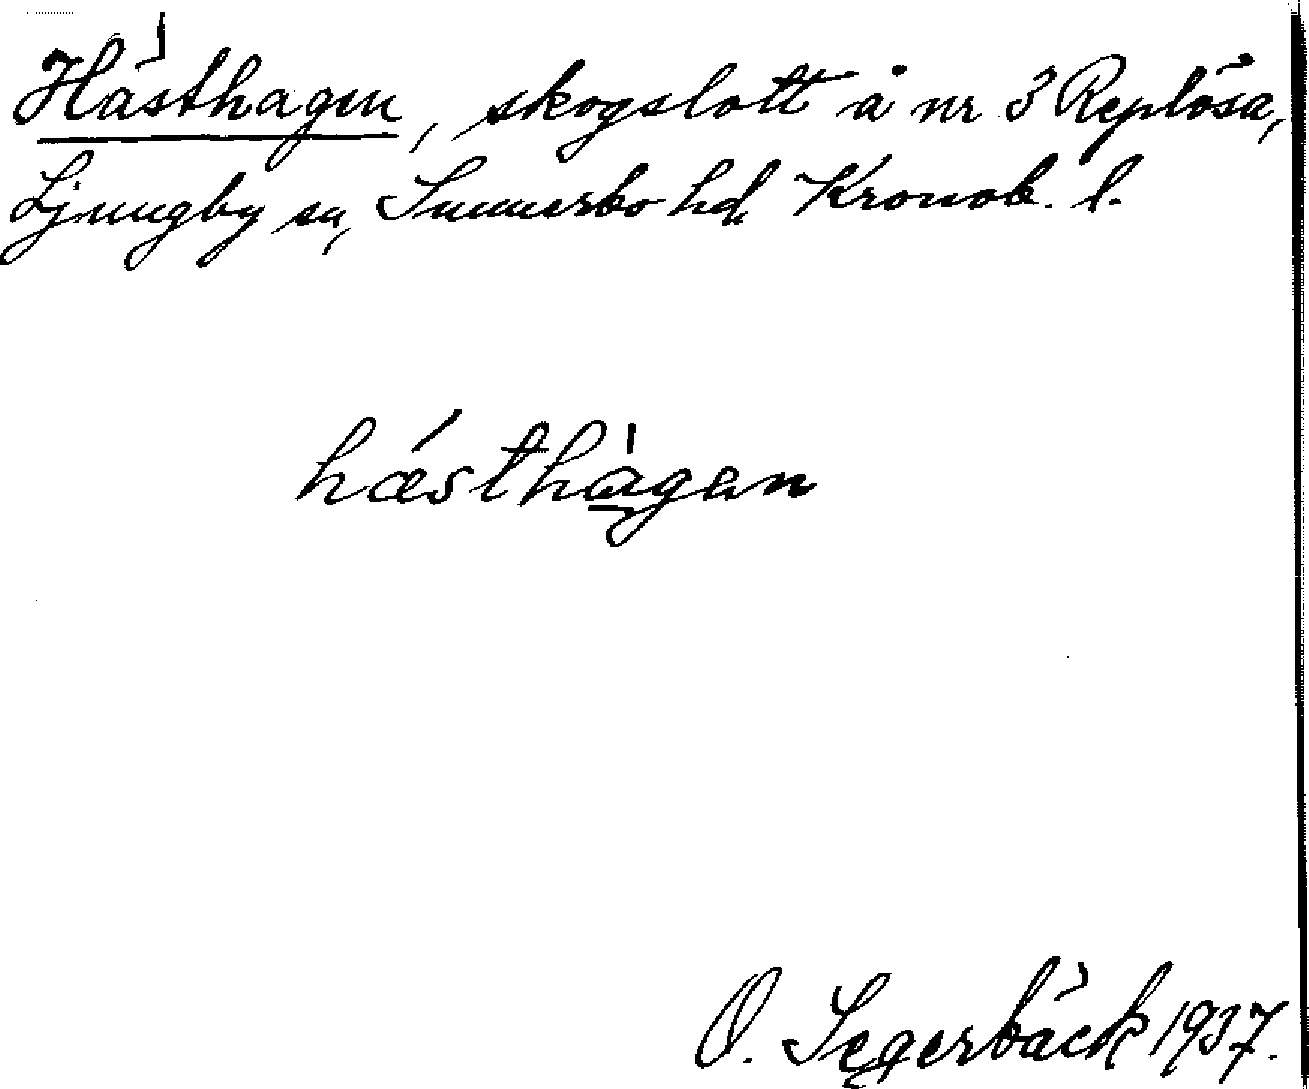 Hästhagen, skogslott å nr 3 Replösa,
Ljungby sn, Sunnerbo hd, Kronob. l.
hǽsthà̱gən
O. Segerbäck 1937.